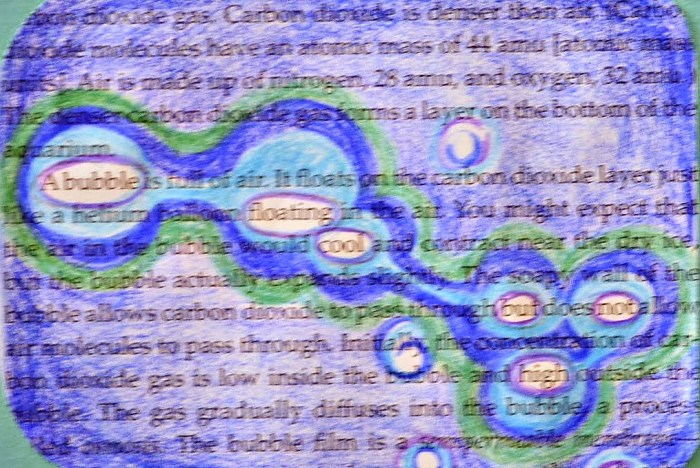 bon dioxide gas. Carbon dioxide is denser than air. (Carbon
dioxide molecules have an atomic mass of 44 amu [atomic mass
units]. Air is made up of nitrogen, 28 amu, and oxygen, 32 amu.
The denser carbon dioxide gas forms a layer on the bottom of the
aquarium.
A bubble is full of air. It floats on the carbon dioxide layer just
like a helium balloon floating in the air. You might expect that
the air in the bubble would cool and contract near the dry ice,
but the bubble actually expands slightly. The soapy wall of the
bubble allows carbon dioxide to pass through but does not allow
air molecules to pass through. Initially the concentration of car-
bon dioxide gas is low inside the bubble and high outside the
bubble. The gas gradually diffuses into the bubble, a process
called osmosis. The bubble film is a semipermeable membrane—